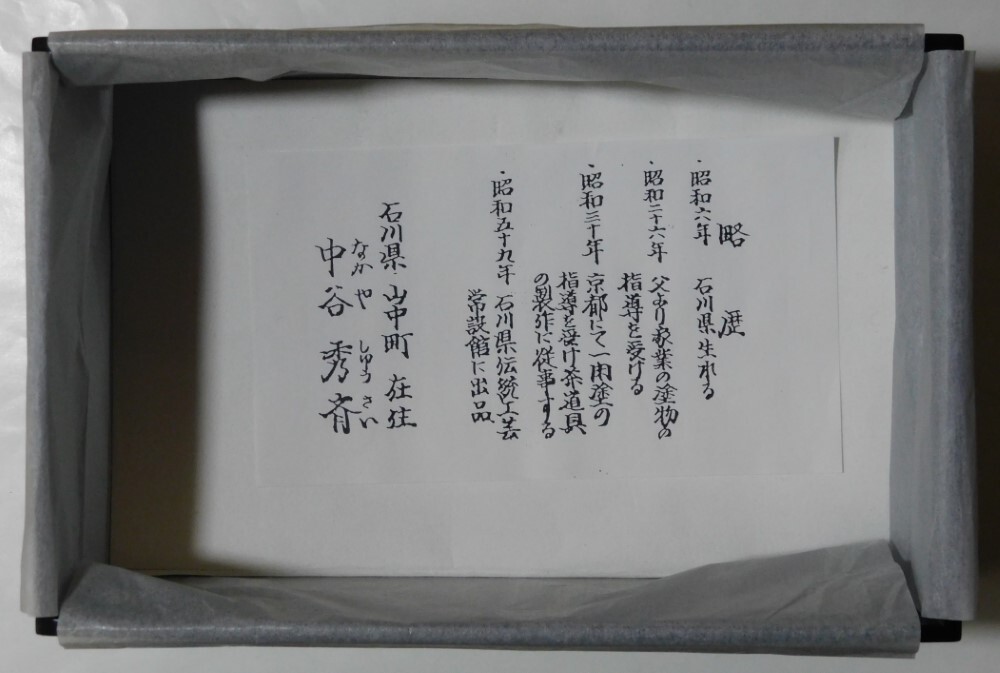 略歴
・昭和六年 石川県生れる
・昭和二十六年 父より家業の塗物の
指導を受ける
・昭和三十年 京都にて一閑塗の
指導を受け茶道具
の製作に従事する
・昭和五十九年 石川県伝統工芸
常設館に出品
石川県・山中町 在住
なかや しゅうさい
中谷 秀斉